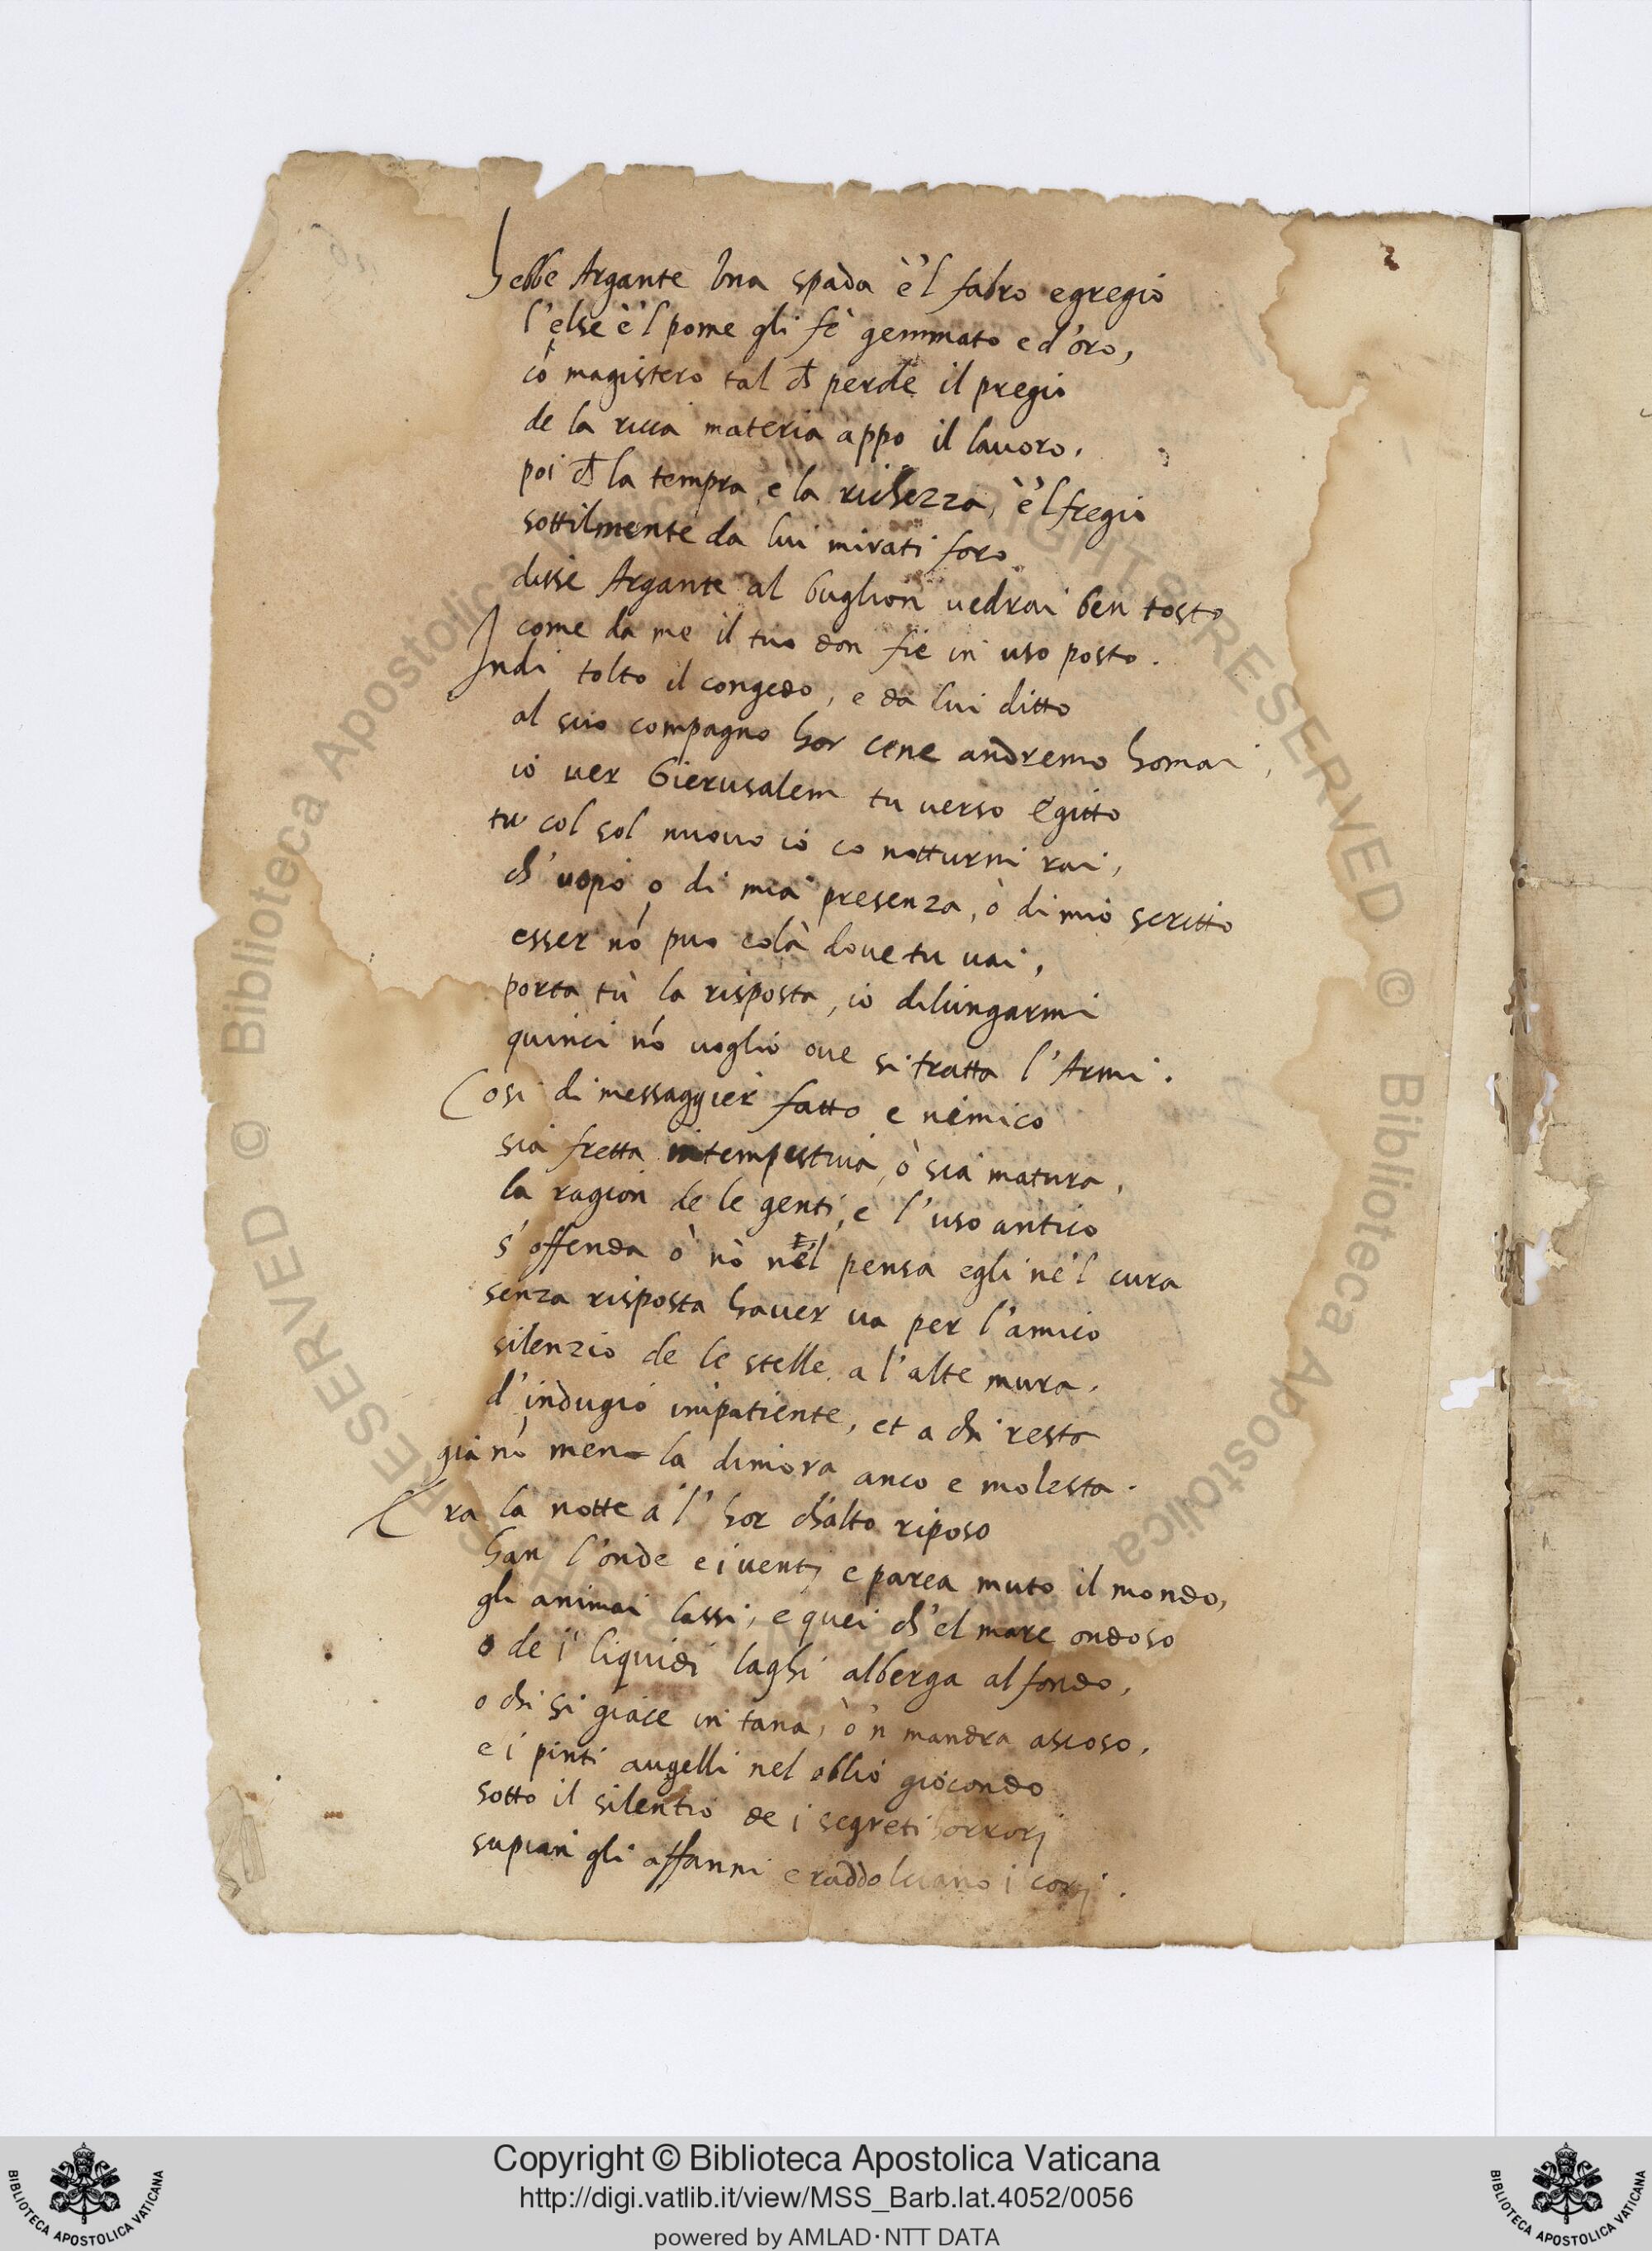 2
hebbe Argante una spada è'l fabro egregio
l'else è'l pome gli fè gemmato e d'oro,
cō magistero tal ch̄ perde il pregio
de la ricca materia appo il lavoro.
poi ch̄ la tempra, e la richezza, è'l fregio
sottilmente da lui mirati foro.
disse Argante al buglion vedrai ben tosto
come da me il tuo don fie in uso posto.
Indi tolto il congedo, e da lui ditto
al suo compagno hor cene andremo homai,
io ver Gierusalem tu verso Egitto
tu col sol nuovo io co notturni rai,
ch' uopo o di mia presenza, ò di mio scritto
esser nō puo colà dove tu vai,
porta tù la risposta, io dilungarmi
quinci nō voglio ove si tratta l'Armi.
Cosi di messaggier fatto e nemico
sia fretta intempestiva, ò sia matura,
la ragion de le genti, e l'uso antico
s'offenda ò nò nèl pensa egli nè'l cura
senza risposta haver va per l'amico
silenzio de le stelle a l'alte mura.
d'indugio impatiente, et a chi resta
già nō men la dimora anco e molesta.
Era la notte a l'hor ch'alto riposo
han l'onde e i venti e parea muto il mondo,
gli animai lassi, e quei ch'el mare ondoso
o de i liquidi laghi alberga al fondo,
o chi si giace in tana, ò'n mandra ascoso,
e i pinti augelli nel oblio giocondo
sotto il silentio de i segreti horrori
sopian gli affanni e raddolciano i cori.
© Biblioteca Apostolica
RESERVED © Biblioteca Apostolica
Copyright © Biblioteca Apostolica Vaticana
http://digi.vatlib.it/view/MSS_Barb.lat.4052/0056
powered by AMLAD·NTT DATA
BIBLIOTECA APOSTOLICA VATICANA
BIBLIOTECA APOSTOLICA VATICANA